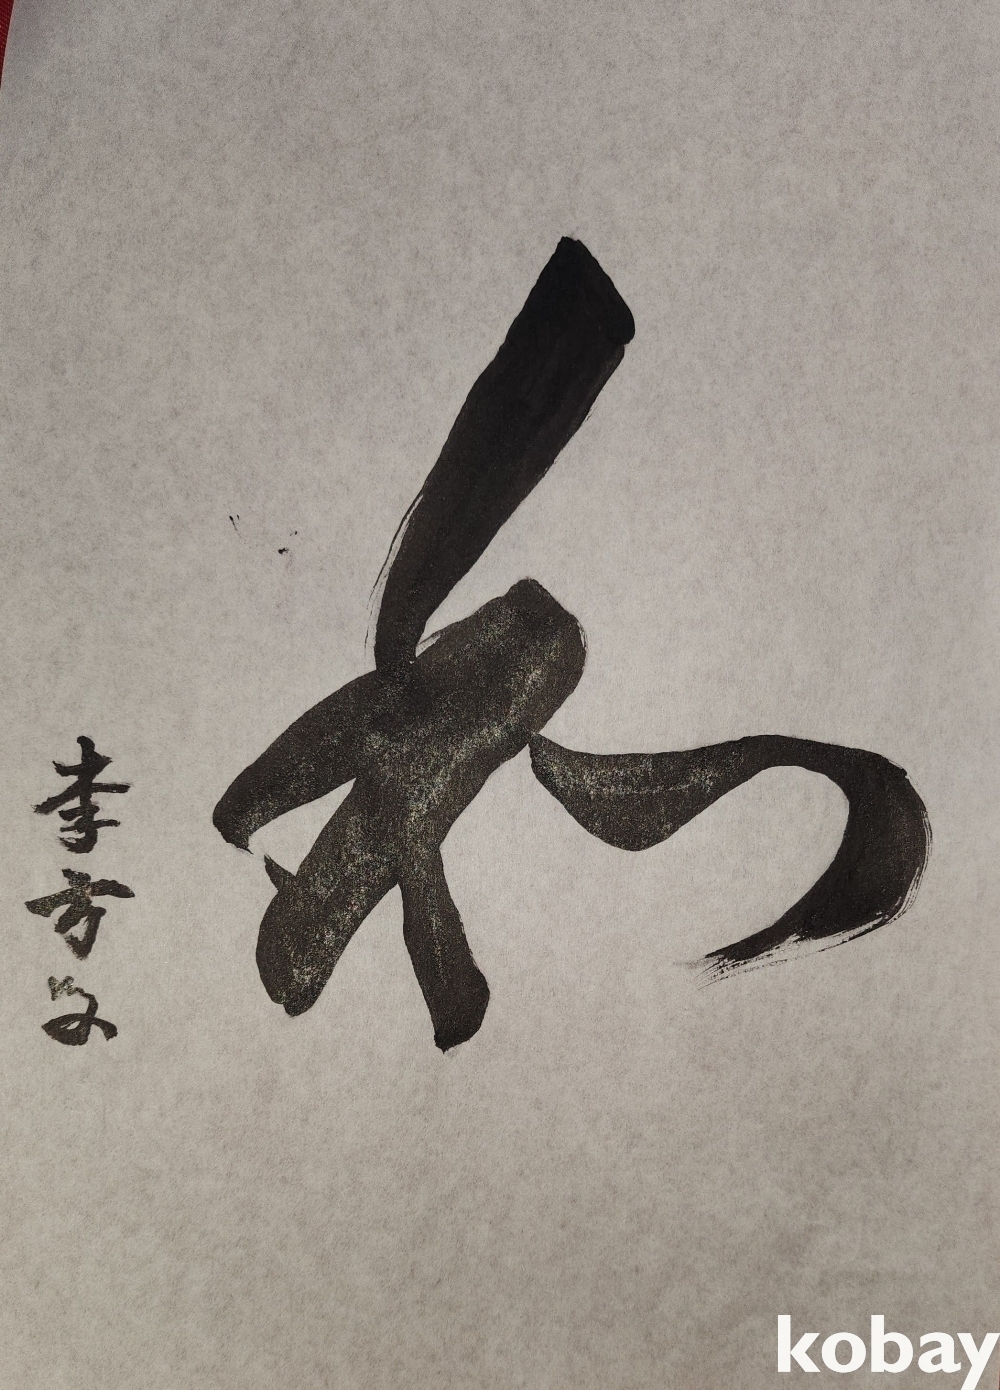 和
李方文
kobay